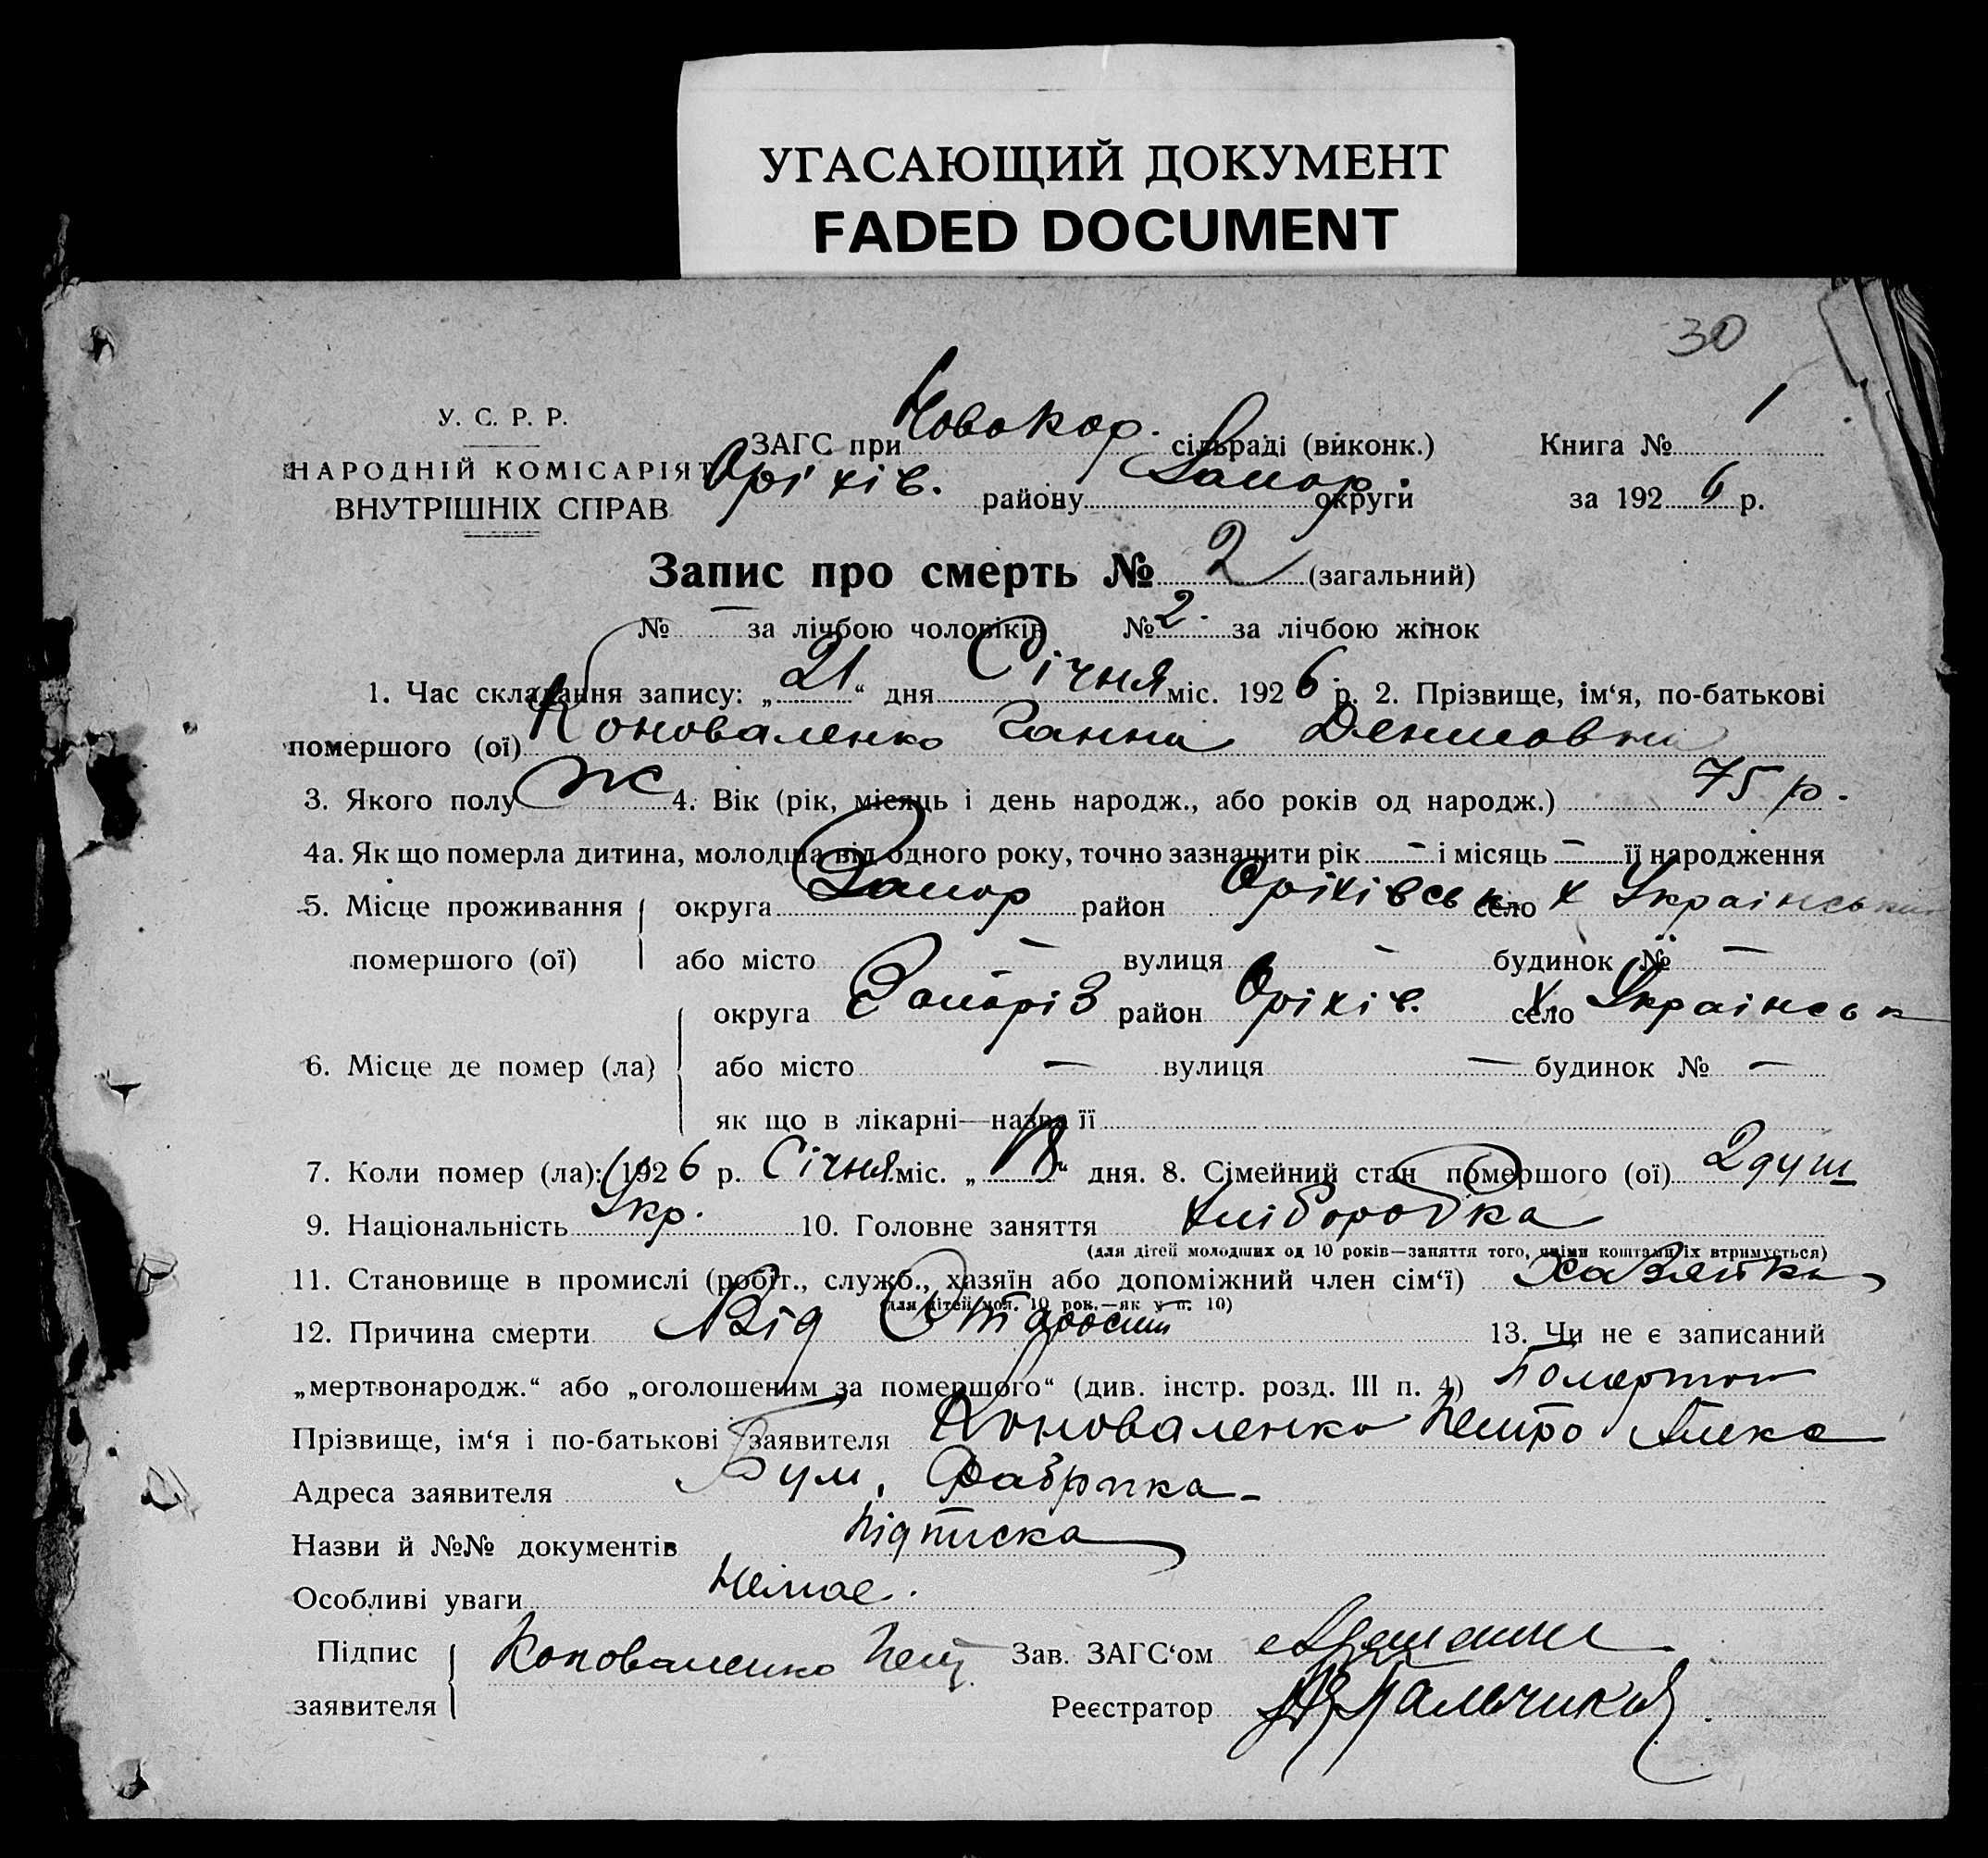 УГАСАЮЩИЙ ДОКУМЕНТ
FADED DOCUMENT
30
У. С. Р. Р.
НАРОДНІЙ КОМІСАРІЯТ
ВНУТРІШНІХ СПРАВ
ЗАГС при Новокар. сільраді (виконк.) Книга № 1
Оріхів. району Запор. округи за 1926 р.
Запис про смерть № 2 (загальний)
№ — за лічбою чоловіків № 2. за лічбою жінок
1. Час складання запису: „21“ дня Січня міс. 1926 р. 2. Прізвище, ім‘я, по-батькові
помершого (ої) Коноваленко Ганна Денисовна
3. Якого полу ж 4. Вік (рік, місяць і день народж., або років од народж.) 75 р.
4а. Як що померла дитина, молодша від одного року, точно зазначити рік — і місяць — її народження
5. Місце проживання помершого (ої) округа Запор район Оріхівськ село х Український
або місто — вулиця — будинок № —
6. Місце де помер (ла) округа Запоріз район Оріхів. село х Українськ
або місто — вулиця — будинок № —
як що в лікарні—назва її
7. Коли помер (ла): 1926 р. Січня міс. „18“ дня. 8. Сімейний стан помершого (ої) 2 душ
9. Національність Укр. 10. Головне заняття Хліборобка
(для дітей молодших од 10 років—заняття того, чиїми коштами їх втримується)
11. Становище в промислі (робіт., служб., хазяїн або допоміжний член сім‘ї) Хазяйка
(для дітей мол. 10 рок.—як у п. 10)
12. Причина смерти Від Старости 13. Чи не є записаний
„мертвонародж.“ або „оголошеним за помершого“ (див. інстр. розд. III п. 4)
Прізвище, ім‘я і по-батькові заявителя Коноваленко Петро Алекс
Адреса заявителя Бум. Фабрика
Назви й №№ документів Підписка
Особливі уваги Немає.
Підпис заявителя Коноваленко Пет Зав. ЗАГС‘ом
Реєстратор